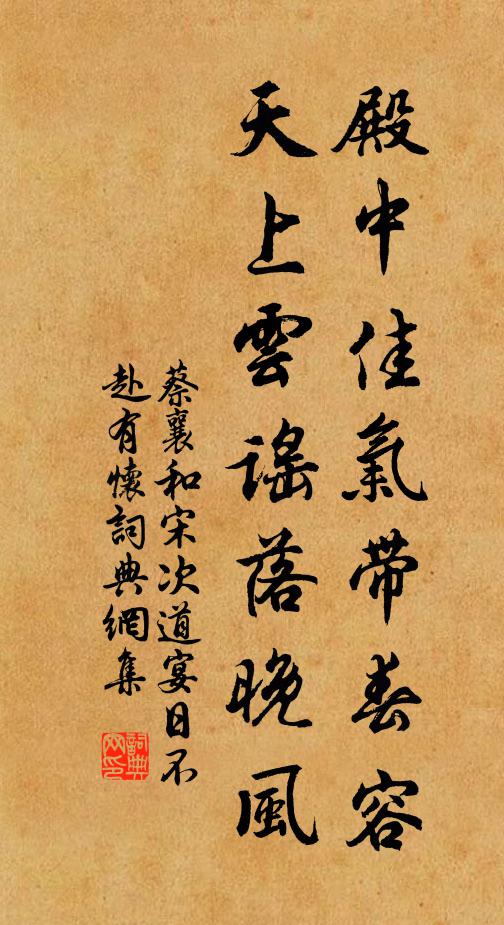 殿中佳氣帶春容
天上雲謠落晚風
蔡襄和宋次道宴日不
赴有懷詞典網集
詞典網印